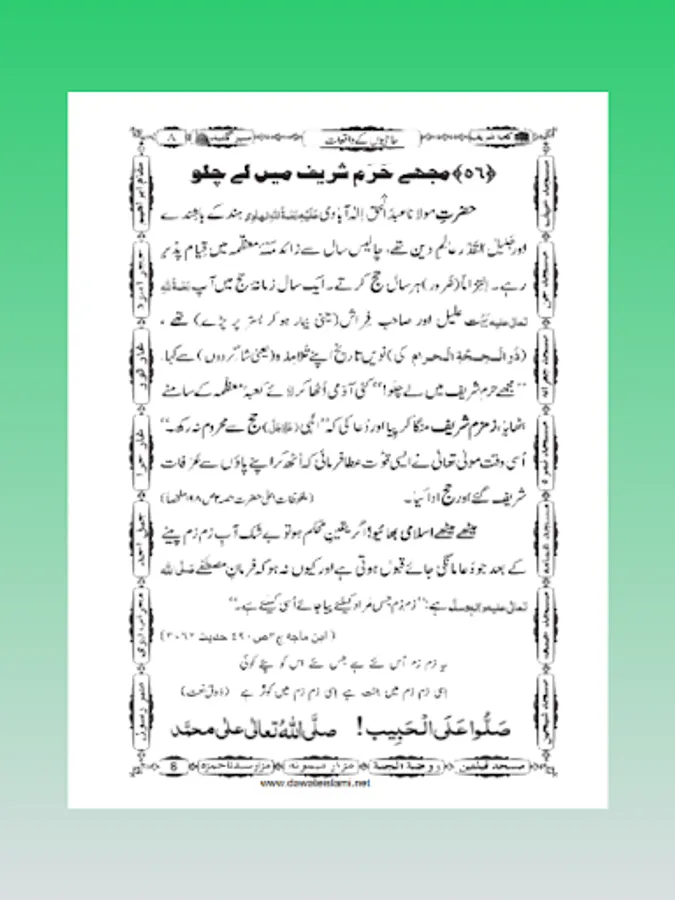 حاجیوں کے واقعات
۸
﴿۵۶﴾ مجھے حَرَم شریف میں لے چلو
حضرتِ مولانا عبدُ الحق اِلٰہ آبادی عَلَیْہِ رَحْمَۃُ اللہِ الْہَادِی ہند کے باشندے
اور جَلِیلُ القَدْر عالمِ دین تھے، چالیس سال سے زائد مکّۂ معظّمہ میں قِیام پذیر
رہے۔ اِلتِزاماً (ضَرور) ہر سال حج کرتے۔ ایک سال زمانۂ حج میں آپ رَحْمَۃُ اللہِ
تعالٰی علیہ بَہُت علیل اور صاحبِ فِراش (یعنی بیمار ہو کر بستر پر پڑے) تھے ،
(ذُوالْحِجَّۃِ الْحرام کی) نویں تاریخ اپنے تَلامِذہ (یعنی شاگردوں) سے کہا:
”مجھے حرم شریف میں لے چلو!“ کئی آدمی اُٹھا کر لائے کعبۂ معظّمہ کے سامنے
بٹھایا، زمزم شریف منگا کر پیا اور دُعا کی کہ ”الٰہی (عَزَّوَجَلَّ) حج سے محروم نہ رکھ۔“
اُسی وقت مولیٰ تعالیٰ نے ایسی قُوَّت عطا فرمائی کہ اُٹھ کر اپنے پاؤں سے عَرَفات
شریف گئے اور حج ادا کیا۔ (ملفوظاتِ اعلیٰ حضرت حصہ ۲ ص ۱۹۸ ملخصاً)
میٹھے میٹھے اسلامی بھائیو! اگر یقین مُحکم ہو تو بے شک آبِ زم زم پینے
کے بعد جو دُعا مانگی جائے قَبول ہوتی ہے اور کیوں نہ ہو کہ فرمانِ مصطَفٰے صَلَّی اللہُ
تعالٰی علیہ والہٖ وسلَّم ہے: ”زمزم جس مُراد کیلئے پیا جائے اُسی کیلئے ہے۔“
(ابن ماجہ ج۳ ص۴۹۰ حدیث ۳۰۶۲)
یہ زم زم اُس لئے ہے جس لئے اس کو پئے کوئی
اِسی زم زم میں جنّت ہے اِسی زم زم میں کوثر ہے (ذوقِ نعت)
صَلُّوا عَلَی الْحَبِیب! صلَّی اللہُ تعالٰی علٰی محمَّد
8
www.dawateislami.net